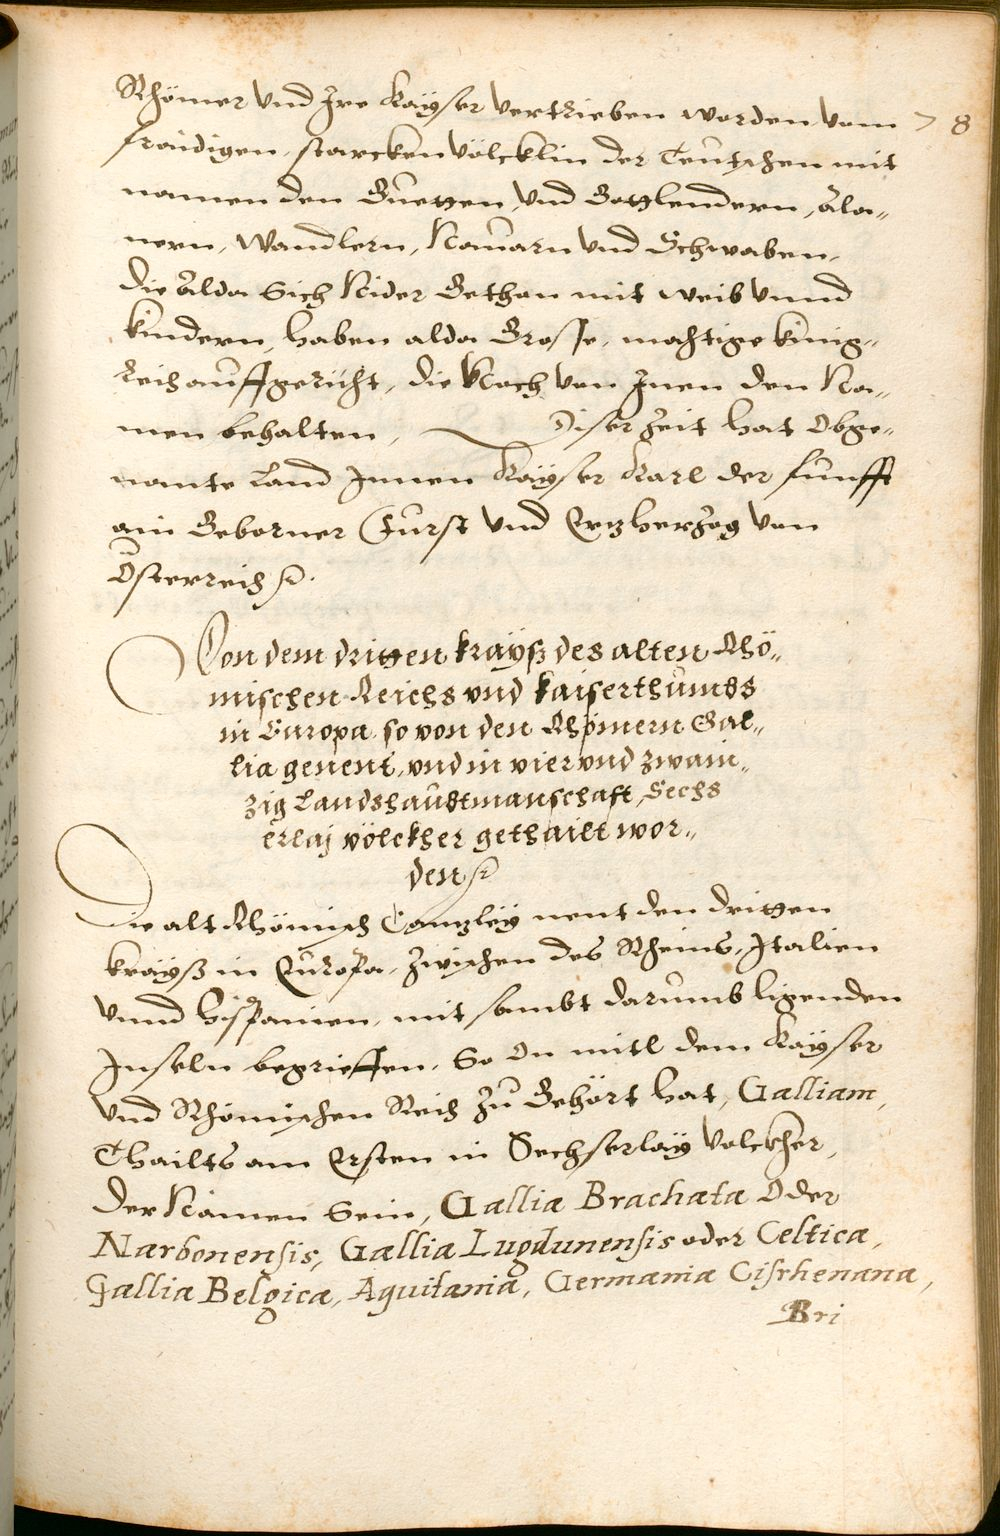 Rhömer vnd Ire Kayser vertrieben worden vom 7 8
fraidigen, starcken völcklin der Teutschen mit
namen den Guetten, vnd Gottlendern, Ala„
nern, Wandlern, Nauarn vnd Schwaben,
die Alda Sich Nider Gethan mit weib vnnd
kindern, haben alda Grosse, mechtige kinig„
reich auffgericht, die Noch von Inen den Na„
men behalten, Diser Zeit hat Obge„
nante Land Innen Kayser Karl der funfft
ain Geborner Furst vnd Ertzherzog von
Österreich
Von dem dritten krayß des alten Rhö„
mischen Reichs vnd kaiserthumbs
in Europa, so von den Rhömern Gal„
lia genent, vnd in vier vnd zwain„
zig Landshaubtmanschaft, Sechs
erlaj völckher gethailt wor„
den
Die alt Rhömisch Cantzley nent den dritten
krayß in Europa, zwischen des Rheins, Italien
vnnd hispanien, mit sambt darumb ligenden
Inseln begrieffen, So On mitl dem Kayser
vnd Rhömischen Reich zu Gehört hat, Galliam,
Thailts am Ersten in Sechserlay Volckher,
der Namen Sein, Gallia Brachata Oder
Narbonensis, Gallia Lugdunensis oder Celtica,
Gallia Belgica, Aquitania, Germania Cisrhenana,
Bri